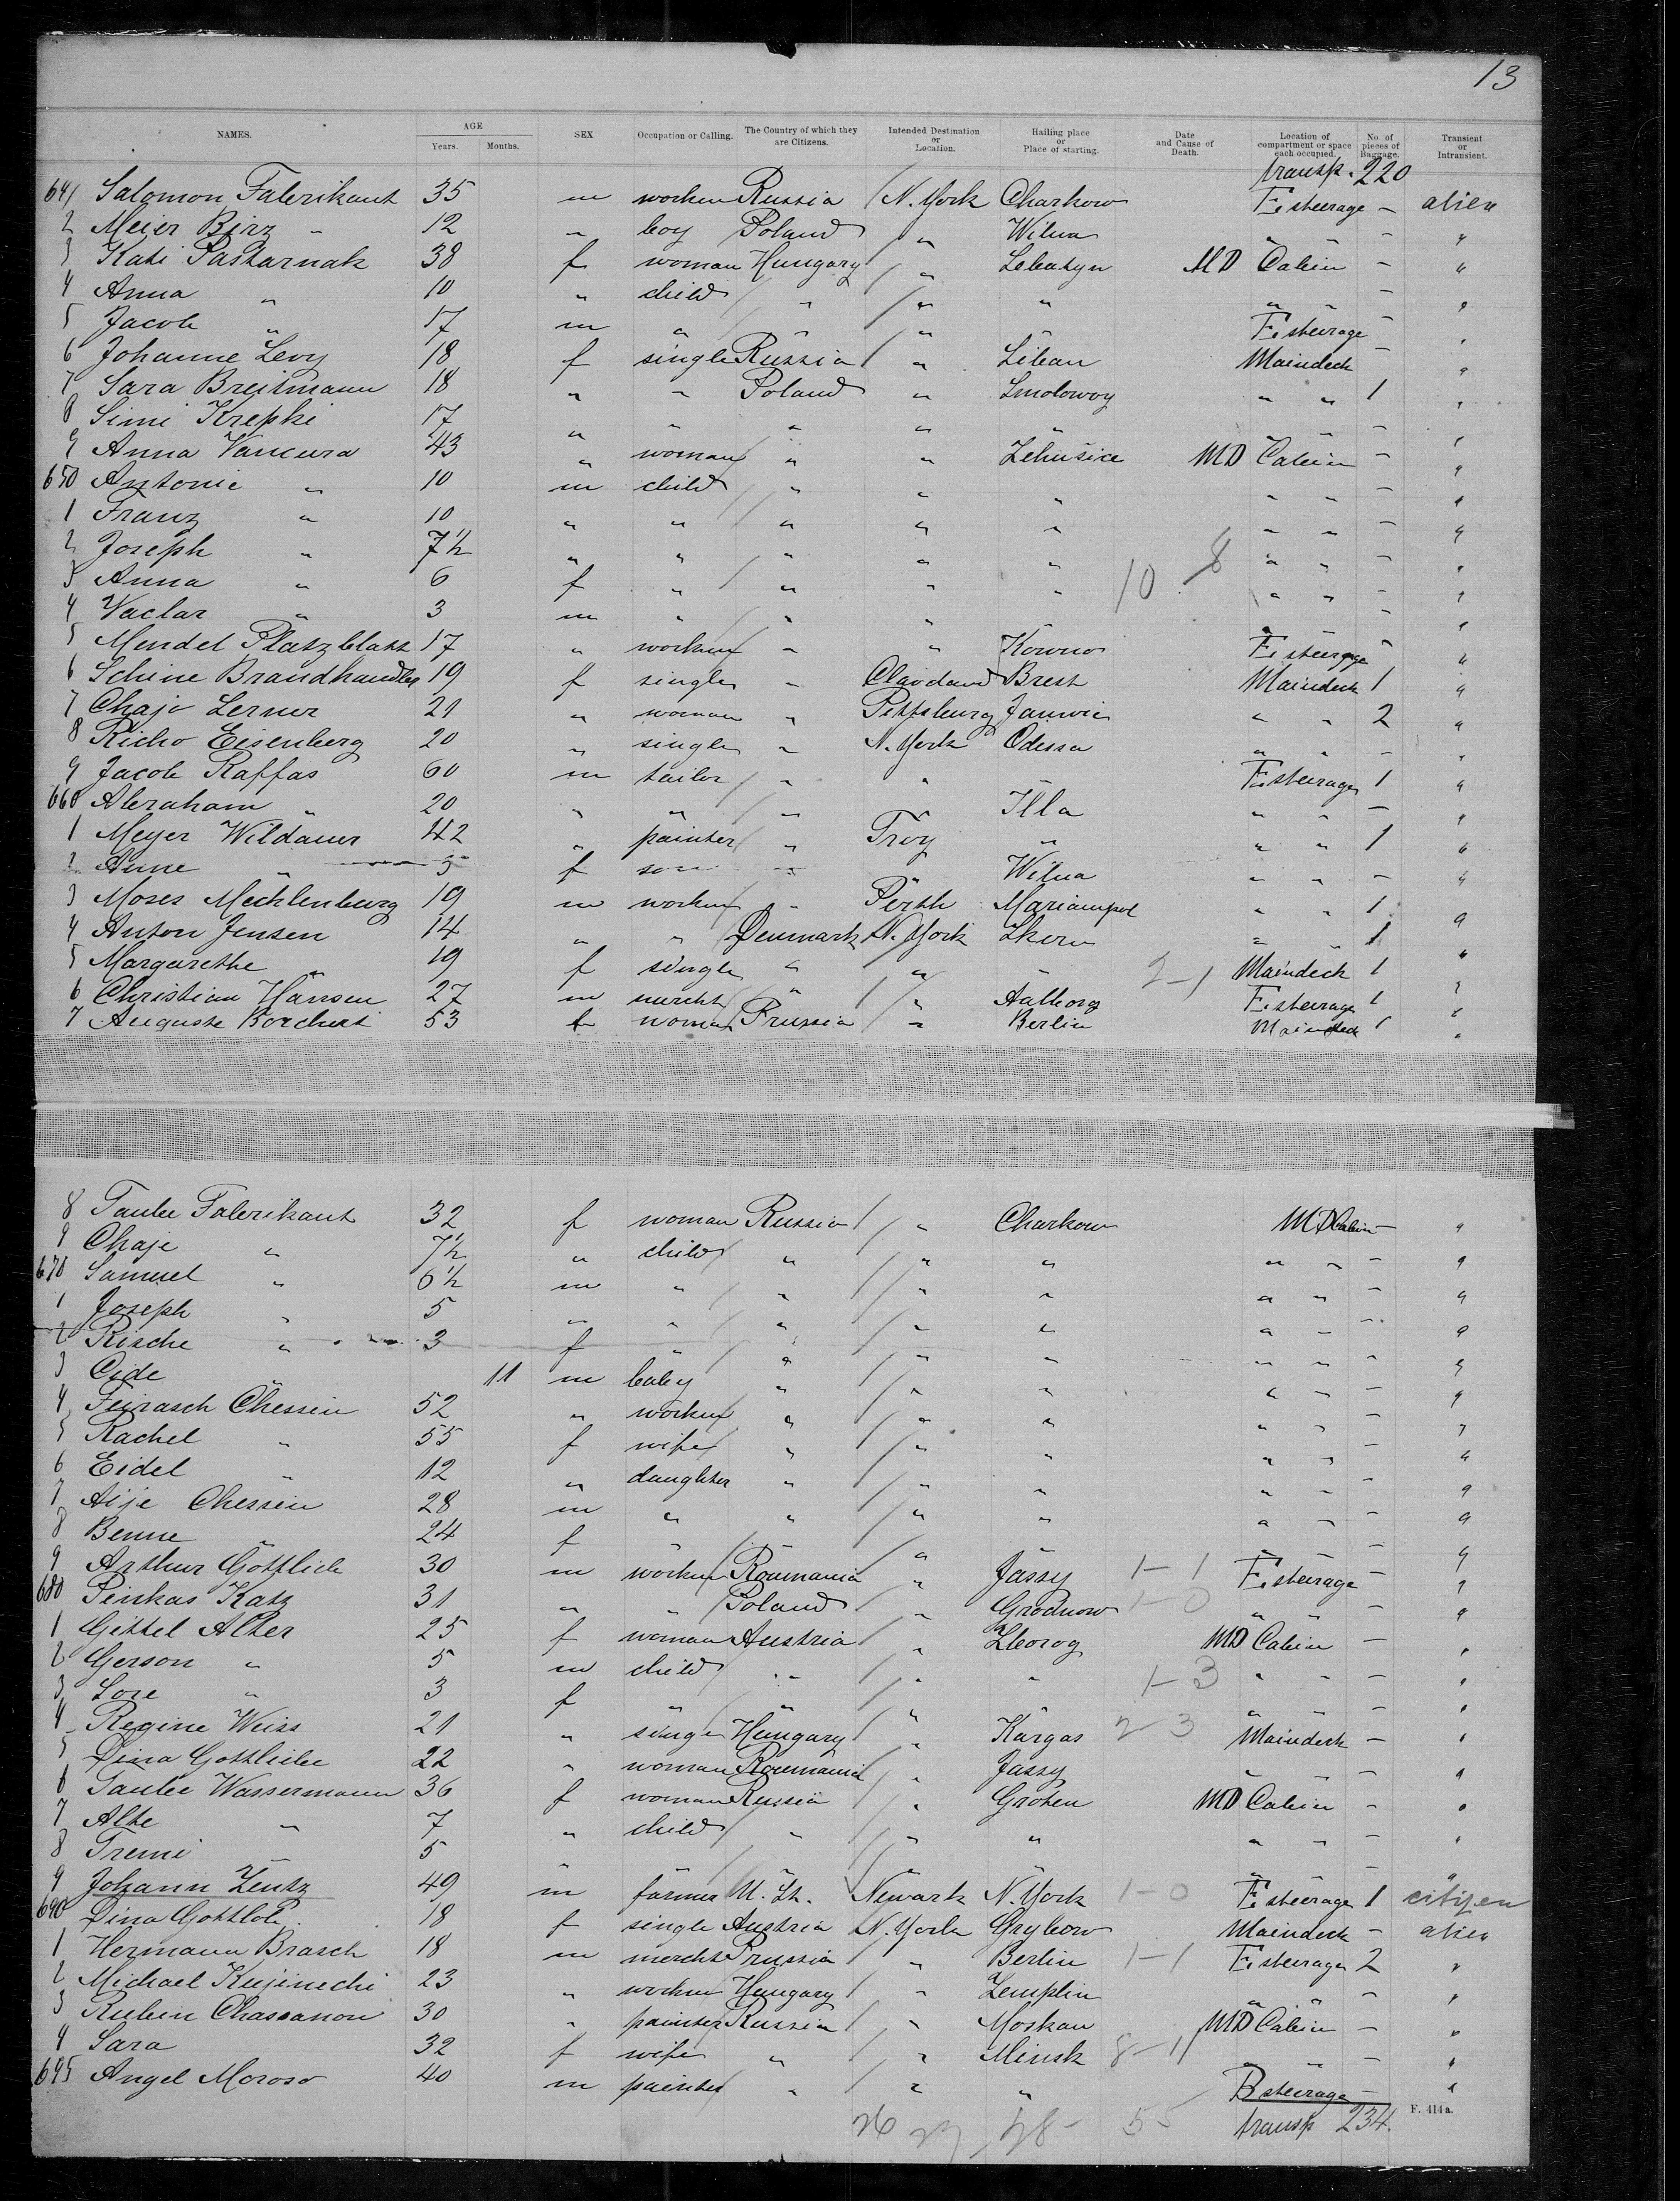 13
NAMES. AGE Years. Months. SEX Occupation or Calling. The Country of which they are Citizens. Intended Destination or Location. Hailing place or Place of starting. Date and Cause of Death. Location of compartment or space each occupied. No. of pieces of Baggage. Transient or Intransient.
transp. 220
641 Salomon Faberikant 35 m workm Russia / N. York Charkow F. steerage - alien
2 Meier Birz - 12 " boy Poland " Wilna " " - "
3 Kati Pastarnak 38 f woman Hungary / " Lebatyn MD Cabin - "
4 Anna " 10 " child / " / " " " " - "
5 Jacob " 17 m " / " " F. steerage - "
6 Johanne Levy 18 f single Russia / " Libau Maindeck - "
7 Sara Breitmann 18 " " Poland " Smolowoy " " 1 "
8 Simi Krepki 17 " " " " " " " - "
9 Anna Vancura 43 " woman / " " Zehušice MD Cabin - "
650 Antonie " 10 m child / " " " " " - "
1 Franz " 10 " " / " " " " " - "
2 Joseph " 7½ " " / " " " 8 " " - "
3 Anna " 6 f " / " " " 10 " " - "
4 Vaclar " 3 m " / " " " " - "
5 Mendel Platzblatt 17 " workm - " Kowno F. steerage - "
6 Schine Brandhandler 19 f single - Clavdand Brest Maindeck 1 "
7 Chaje Lerner 21 " woman " Pittsburg Janwie " " 2 "
8 Richo Eisenberg 20 " single " N. York Odessa " " - "
9 Jacob Raffas 60 m tailor / " " F. steerage 1 "
660 Abraham " 20 " " / " Illa " " - "
1 Meyer Wildauer 42 " painter / " Troy " " " 1 "
2 Anne " 5 f " Wilna " " - "
3 Moses Mechlenburg 19 m workm " Perth Mariampol " " 1 "
4 Anton Jensen 14 " " Denmark N. York Skern " " 1 "
5 Margarethe " 19 f single " " " 2-1 Maindeck 1 "
6 Christian Hansen 27 m mercht / " / " Aalborg F. steerage 1 "
7 Auguste Borchert 53 f woman Prussia / " Berlin Maindeck 1 "
8 Taube Faberikant 32 f woman Russia / " Charkow MD Cabin - "
9 Chaje " 7½ " child / " / " " " " - "
670 Samuel " 6½ m " / " / " " " " - "
1 Joseph " 5 " " / " / " " " " - "
2 Rische " 3 f " / " / " " " " - "
3 Cide 11 m baby " / " " " " - "
4 Feirasch Chessin 52 " workm " / " " " " - "
5 Rachel " 55 f wife / " / " " " " - "
6 Eidel " 12 " daughter " / " " " " - "
7 Aije Chessin 28 m " " / " " " " - "
8 Benne " 24 f " / " " " " - "
9 Arthur Gottlieb 30 m workm Roumania " Jassy 1-1 F. steerage - "
680 Pinkas Katz 31 " " / Poland " Grodnow 1-0 " " - "
1 Gittel Alter 25 f woman Austria " Zborog MD Cabin - "
2 Gerson " 5 m child / " / " " 1-3 " " - "
3 Lore " 3 f " / " / " " " " - "
4 Regine Weiss 21 " single Hungary / " Kargas 2-3 Maindeck - "
5 Dina Gottliebe 22 " woman Roumania / " Jassy " " - "
6 Taube Wassermann 36 f woman Russia / " Groten MD Cabin - "
7 Alte " 7 " child / " / " " " " - "
8 Tremi " 5 " " / " / " " " " - "
9 Johann Lentz 49 m farmer U. St. Newark N. York 1-0 F. steerage 1 citizen
690 Dina Gottlob 18 f single Austria N. York Grybow Maindeck - alien
1 Hermann Brasch 18 m mercht Prussia " Berlin 1-1 F. steerage 2 "
2 Michael Kujinechi 23 " workm Hungary / " Zemplin " " - "
3 Rubin Chassanon 30 " painter Russia / " Moskau MD Cabin - "
4 Sara 32 f wife " / " Minsk 8-11 " " - "
695 Angel Moroso 40 m painter / " / " " B steerage - "
26 27 28 - 55 transp 234.
F. 414a.